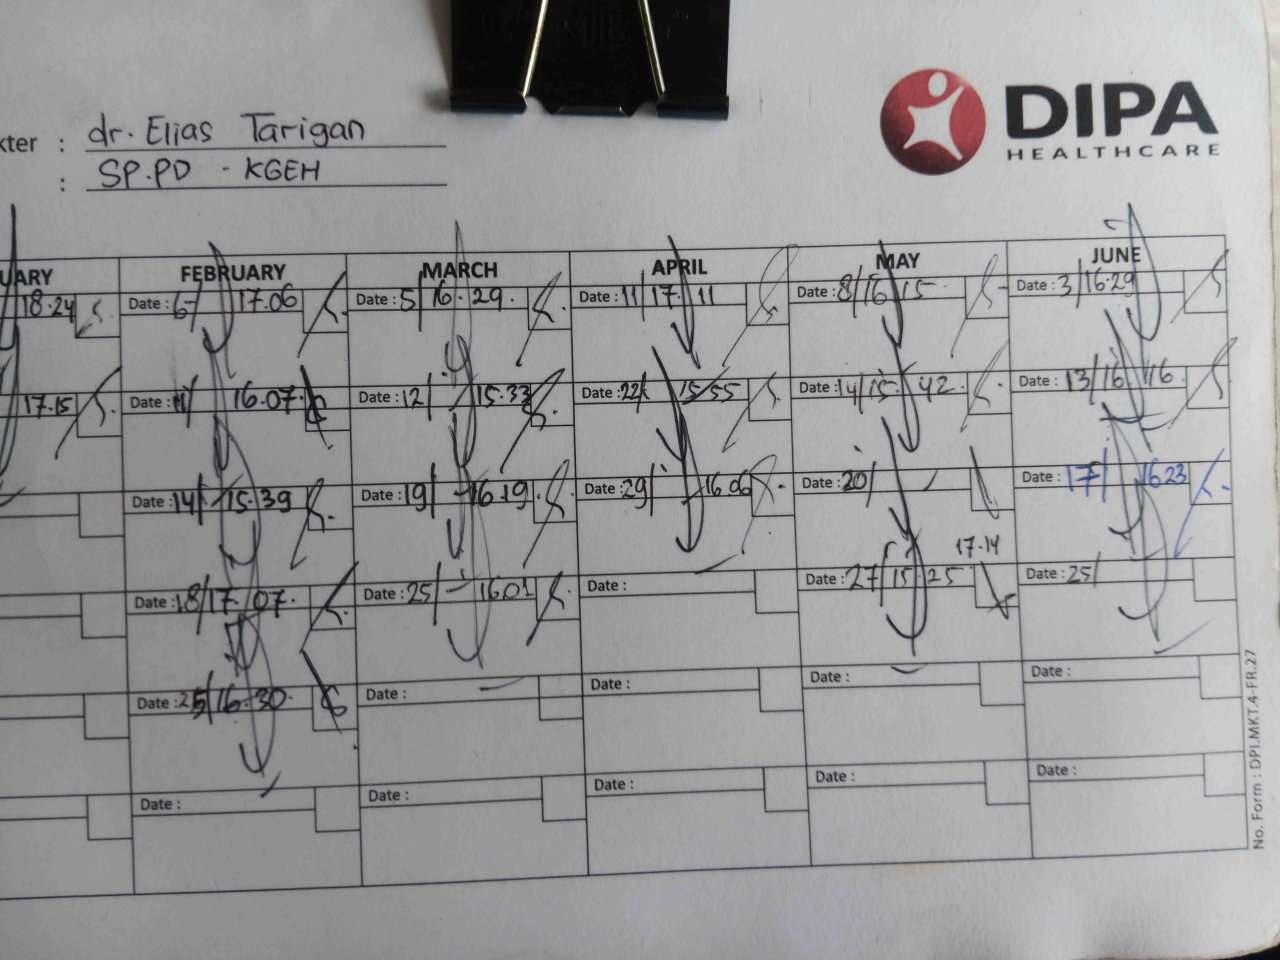 DIPA
HEALTHCARE
kter : dr. Elias Tarigan
: SP.PD - KGEH
UARY FEBRUARY MARCH APRIL MAY JUNE
18.24 Date : 6 17.06 Date : 5/16.29. Date : 11/17.11 Date : 8/16 15 Date : 3/16.29
17.15 Date : 11/ 16.07. Date : 12/ 15.33 Date : 22/ 15 55 Date : 14/15.42. Date : 13/16 16
Date : 14/ 15.39 Date : 19/ 16.19. Date : 29/ 16.06 Date : 20/ Date : 17/ 16.23
17.14
Date : 18/17.07. Date : 25/ 16.01 Date : Date : 27/15 25 Date : 25/
Date : 25/16.30. Date : Date : Date : Date :
Date : Date : Date : Date : Date :
No. Form : DPI.MKT.4-FR.27